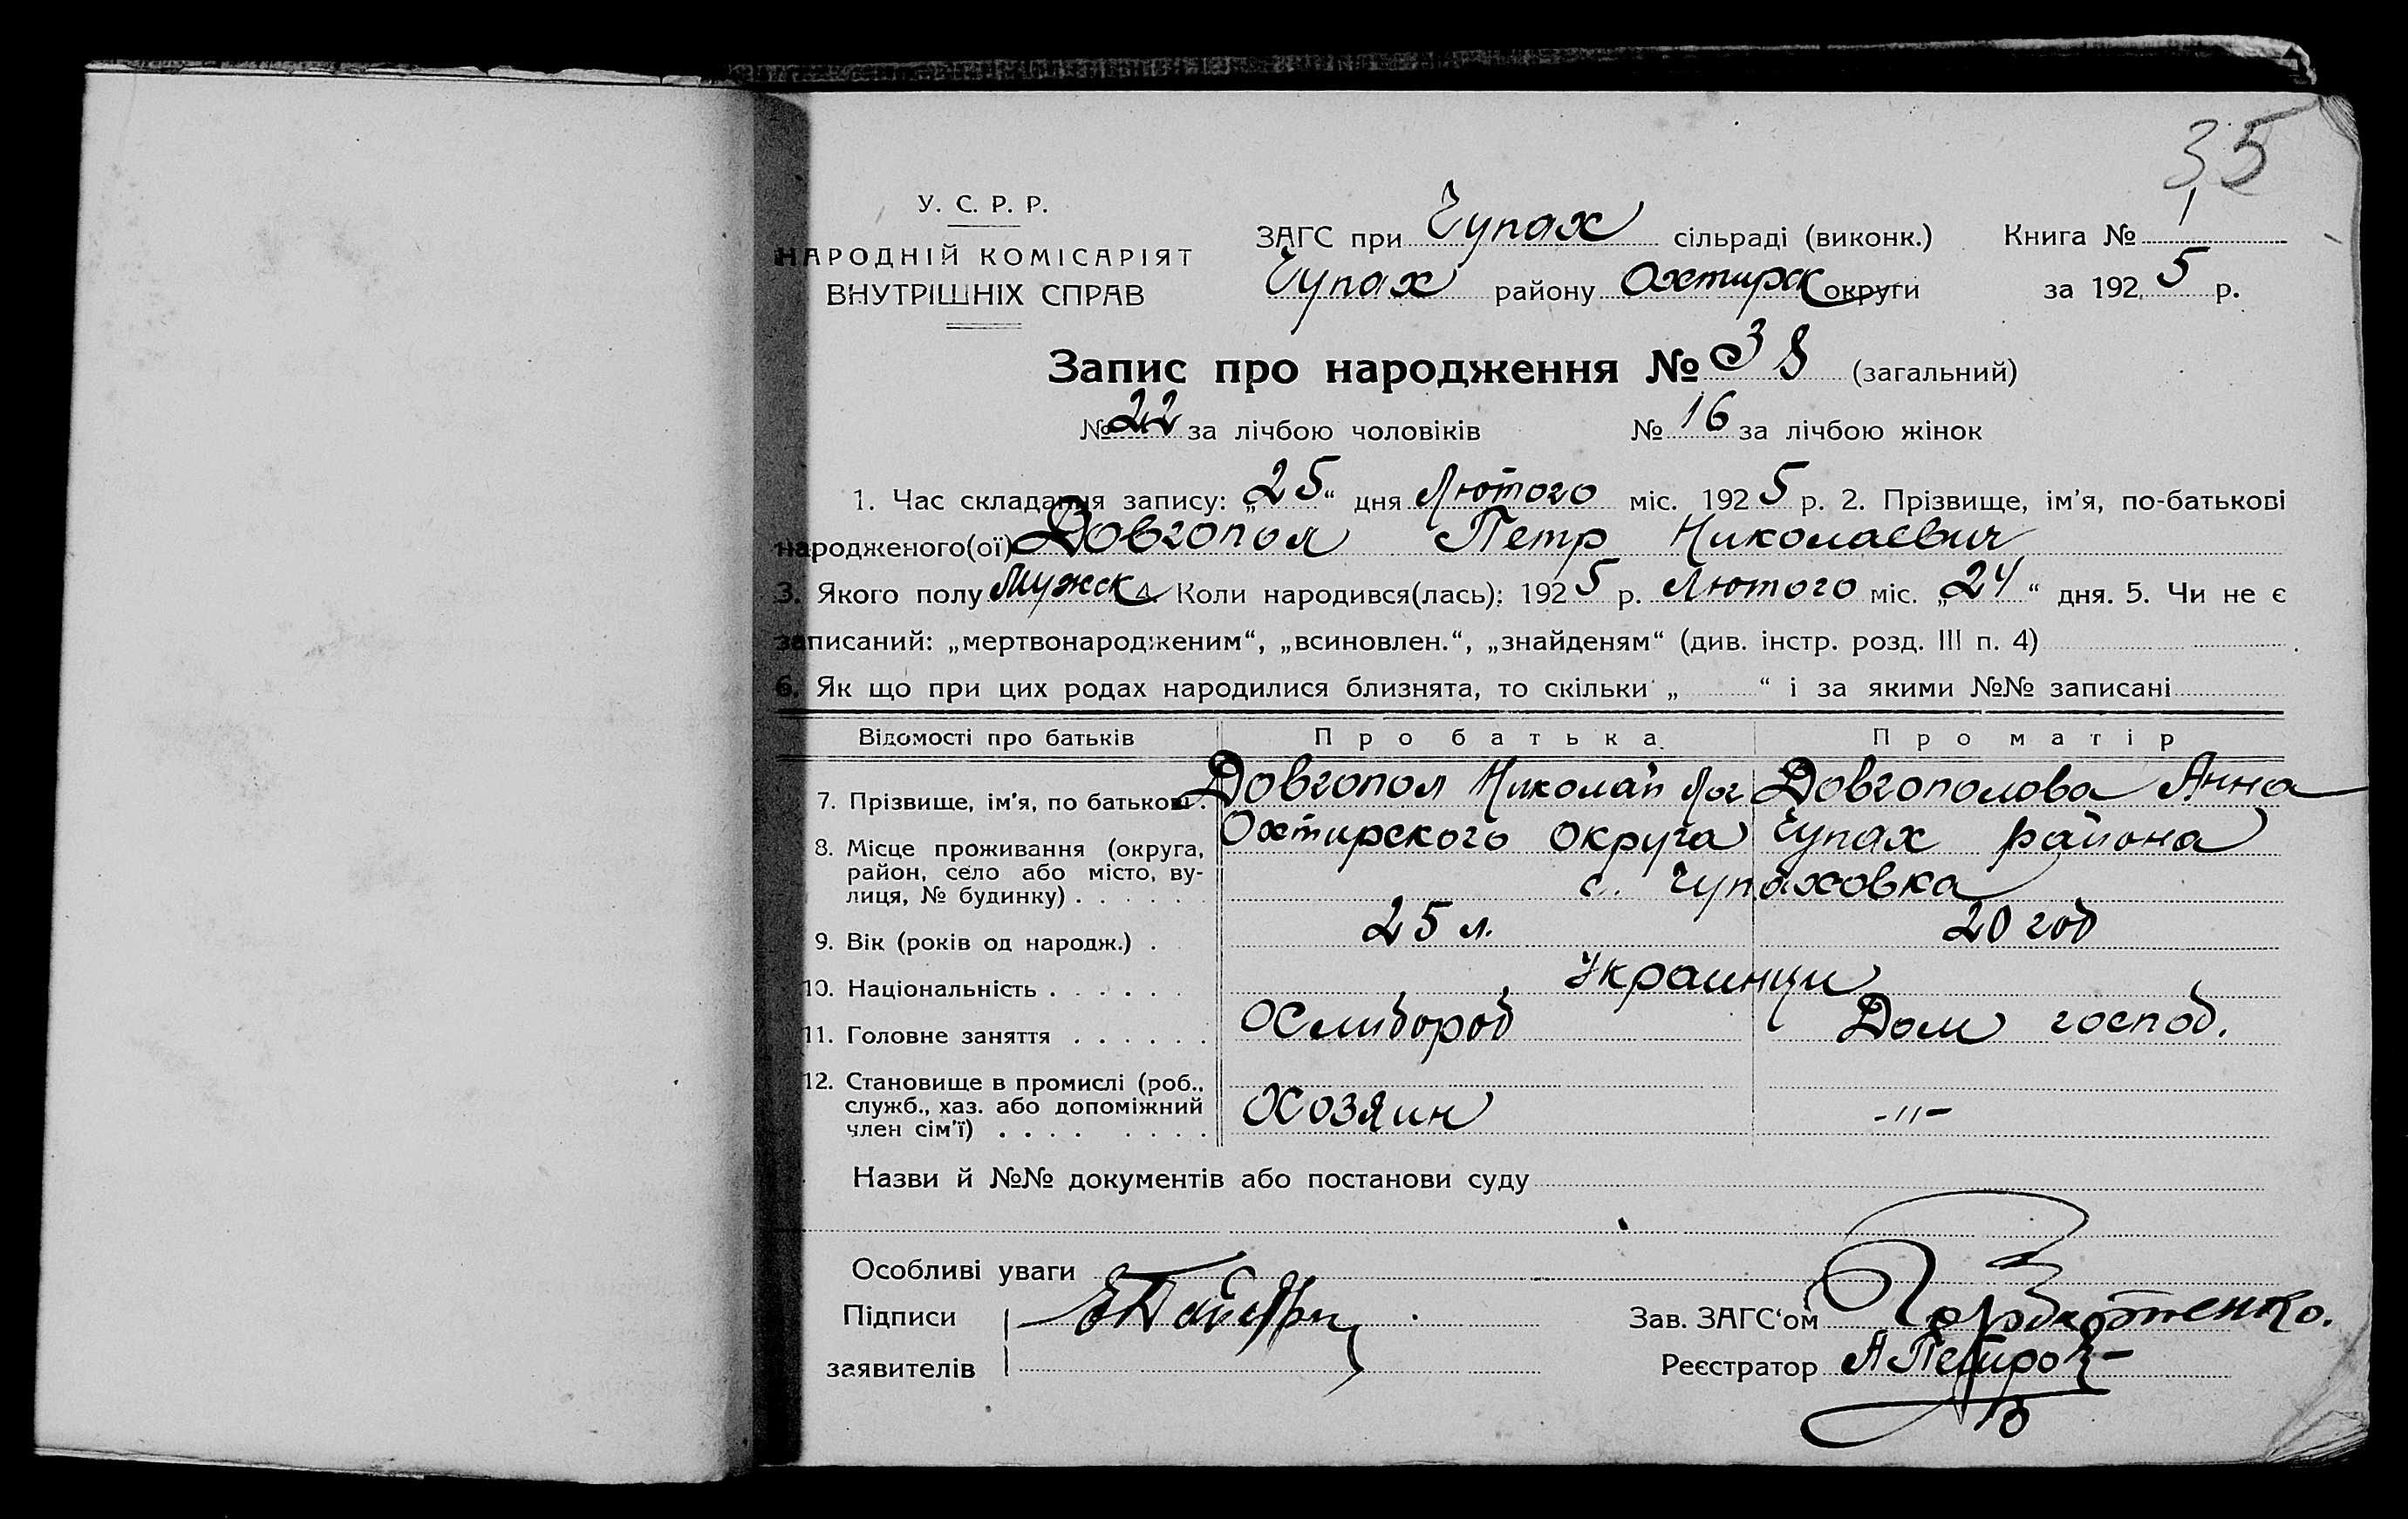 35
У. С. Р. Р.
НАРОДНІЙ КОМІСАРІЯТ
ВНУТРІШНІХ СПРАВ
ЗАГС при Чупах сільраді (виконк.) Книга № 1
Чупах району Охтирск округи за 1925 р.
Запис про народження № 38 (загальний)
№ 22 за лічбою чоловіків № 16 за лічбою жінок
1. Час складання запису: „25“ дня Лютого міс. 1925 р. 2. Прізвище, ім'я, по-батькові
народженого(ої) Довгопол Петр Николаевич
3. Якого полу Мужск 4. Коли народився(лась): 1925 р. Лютого міс. „24“ дня. 5. Чи не є
записаний: „мертвонародженим“, „всиновлен.“, „знайденям“ (див. інстр. розд. III п. 4)
6. Як що при цих родах народилися близнята, то скільки „ “ і за якими №№ записані
Відомості про батьків Про батька Про матір
7. Прізвище, ім'я, по батькові . Довгопол Николай Довгополова Анна
8. Місце проживання (округа, район, село або місто, вулиця, № будинку) . . . . . . Охтирского округа Чупах района
с. Чупаховка
9. Вік (років од народж.) . 25 л. 20 год
10. Національність . . . . . . Украинци
11. Головне заняття . . . . . . Хлибороб Дом господ.
12. Становище в промислі (роб., служб., хаз. або допоміжний член сім'ї) . . . . . . . . Хозяин -"-
Назви й №№ документів або постанови суду
Особливі уваги
Підписи
заявителів
Зав. ЗАГС'ом Горбатенко.
Реєстратор А Петров